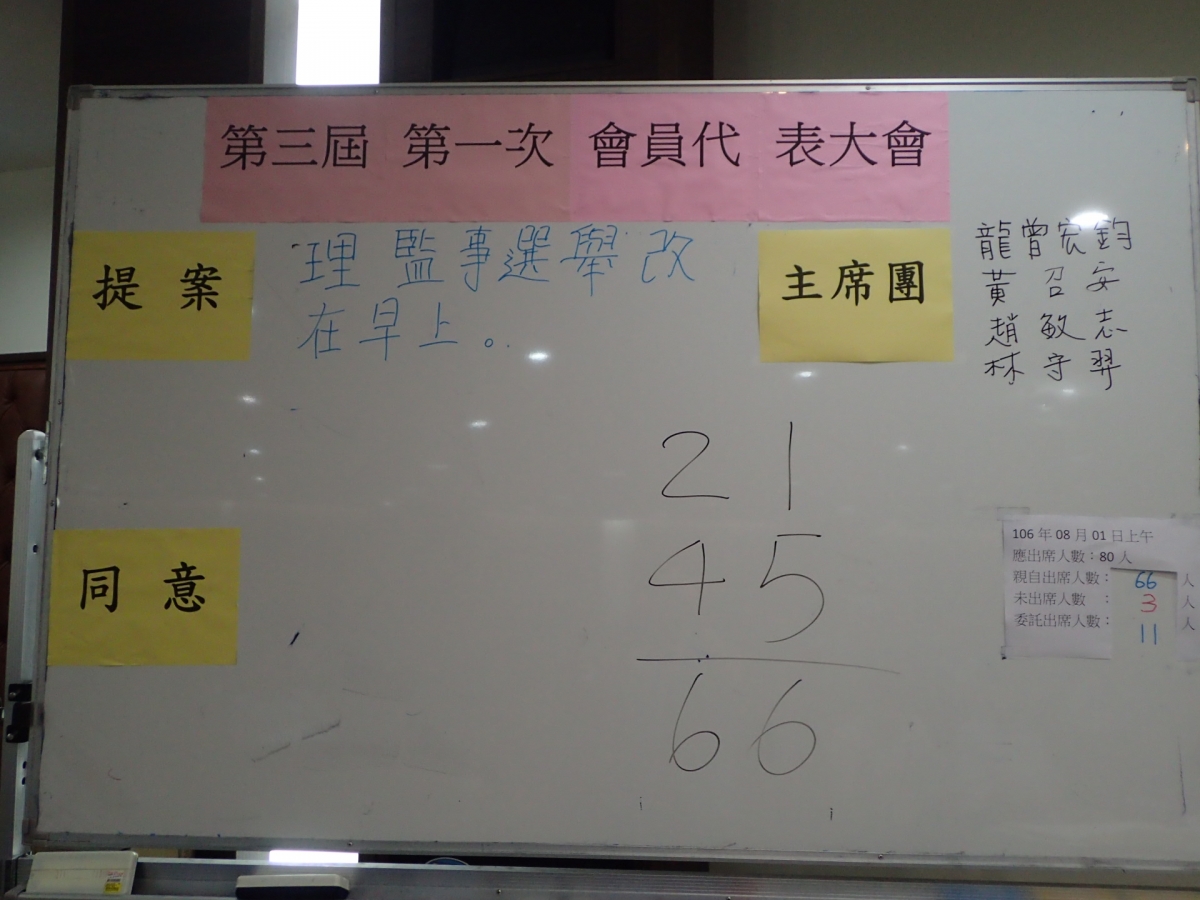 第三屆 第一次 會員代 表大會
提案
理監事選舉改
在早上。
主席團
龍曾宏鈞
黃召安
趙敏志
林守羿
21
45
66
同意
106年08月01日上午
應出席人數：80人
親自出席人數：66人
未出席人數：3人
委託出席人數：11人